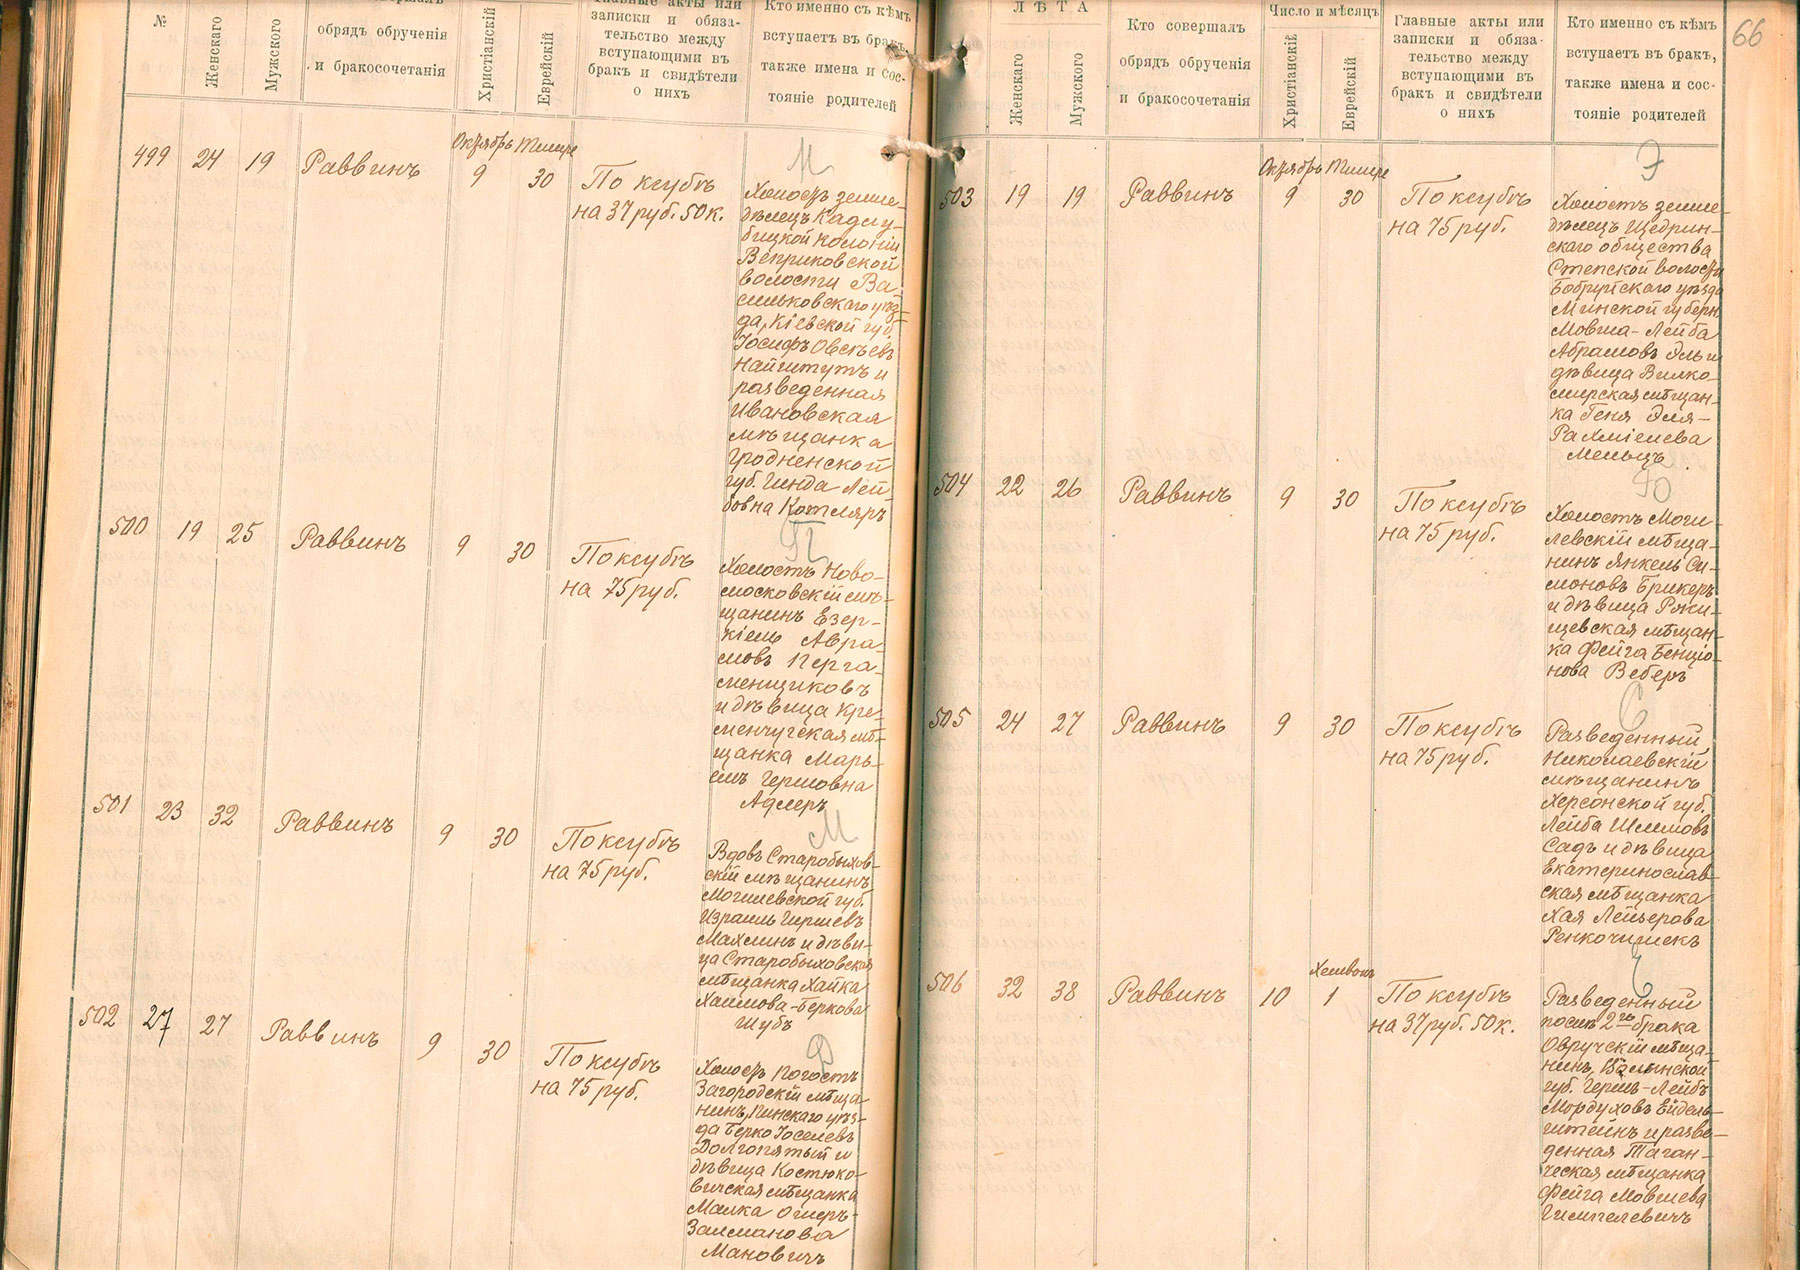 №
Женскаго
Мужского
обрядъ обрученія
и бракосочетанія
Христіанскій
Еврейскій
Главные акты или
записки и обяза-
тельство между
вступающими въ
бракъ и свидѣтели
о нихъ
Кто именно съ кѣмъ
вступаетъ въ бракъ,
также имена и сос-
тояніе родителей
499 24 19 Раввинъ
Октябрь Тишре
9 30
По ксубѣ
на 37 руб. 50 к.
Холостъ земле-
дѣлецъ Кадлу-
бицкой колоніи
Веприковской
волости Ва-
сильковскаго уѣз-
да, Кіевской губ.
Іосифъ Овсѣевъ
Найштутъ и
разведенная
Ивановская
мѣщанка
Гродненской
губ. Гинда Лей-
бовна Котляръ
500 19 25 Раввинъ 9 30
По ксубѣ
на 75 руб.
П
Холостъ Ново-
московскій мѣ-
щанинъ Езер-
кіель Авра-
мовъ Перга-
менщиковъ
и дѣвица Кре-
менчугская мѣ-
щанка Марь-
ямъ Гершовна
Адлеръ
501 23 32 Раввинъ 9 30
По ксубѣ
на 75 руб.
М
Вдовъ Старобыхов-
скій мѣщанинъ
Могилевской губ.
Израиль Гиршевъ
Махлинъ и дѣви-
ца Старобыховская
мѣщанка Хайка
Хаимова-Беркова
Шубъ
502 27 27 Раввинъ 9 30
По ксубѣ
на 75 руб.
Д
Холостъ Погостъ
Загородскій мѣща-
нинъ, Пинскаго уѣз-
да Берко Іоселевъ
Долгопятый и
дѣвица Костюко-
вичская мѣщанка
Малка Ошеръ-
Залманова
Мановичъ
66
ЛѢТА
Женскаго
Мужского
Кто совершалъ
обрядъ обрученія
и бракосочетанія
Число и мѣсяцъ
Христіанскій
Еврейскій
Главные акты или
записки и обяза-
тельство между
вступающими въ
бракъ и свидѣтели
о нихъ
Кто именно съ кѣмъ
вступаетъ въ бракъ,
также имена и сос-
тояніе родителей
503 19 19 Раввинъ
Октябрь Тишре
9 30
По ксубѣ
на 75 руб.
Э
Холостъ земле-
дѣлецъ Щедрин-
скаго общества
Степской волости
Бобруйскаго уѣзда
Минской губерн.
Мовша-Лейба
Абрамовъ Эль и
дѣвица Вилко-
мирская мѣщан-
ка Геня Эля-
Рахміелева
Мельцъ
504 22 26 Раввинъ 9 30
По ксубѣ
на 75 руб.
Холостъ Моги-
левскій мѣща-
нинъ Янкель Си-
моновъ Брикеръ
и дѣвица Ржи-
щевская мѣщан-
ка Фейга Бенціо-
нова Веберъ
505 24 27 Раввинъ 9 30
По ксубѣ
на 75 руб.
С
Разведенный,
Николаевскій
мѣщанинъ
Херсонской губ.
Лейба Шлимовъ
Садъ и дѣвица
Екатеринослав-
ская мѣщанка
Хая Лейзерова
Ренкочишекъ
506 32 38 Раввинъ
Хешвонъ
10 1
По ксубѣ
на 37 руб. 50 к.
Разведенный
послѣ 2го брака
Овручскій мѣща-
нинъ, Волынской
губ. Гершъ-Лейбъ
Мордуховъ Ейдель-
штейнъ и разве-
денная Таган-
ческая мѣщанка
Фейга Мовшева
Гимпелевичъ